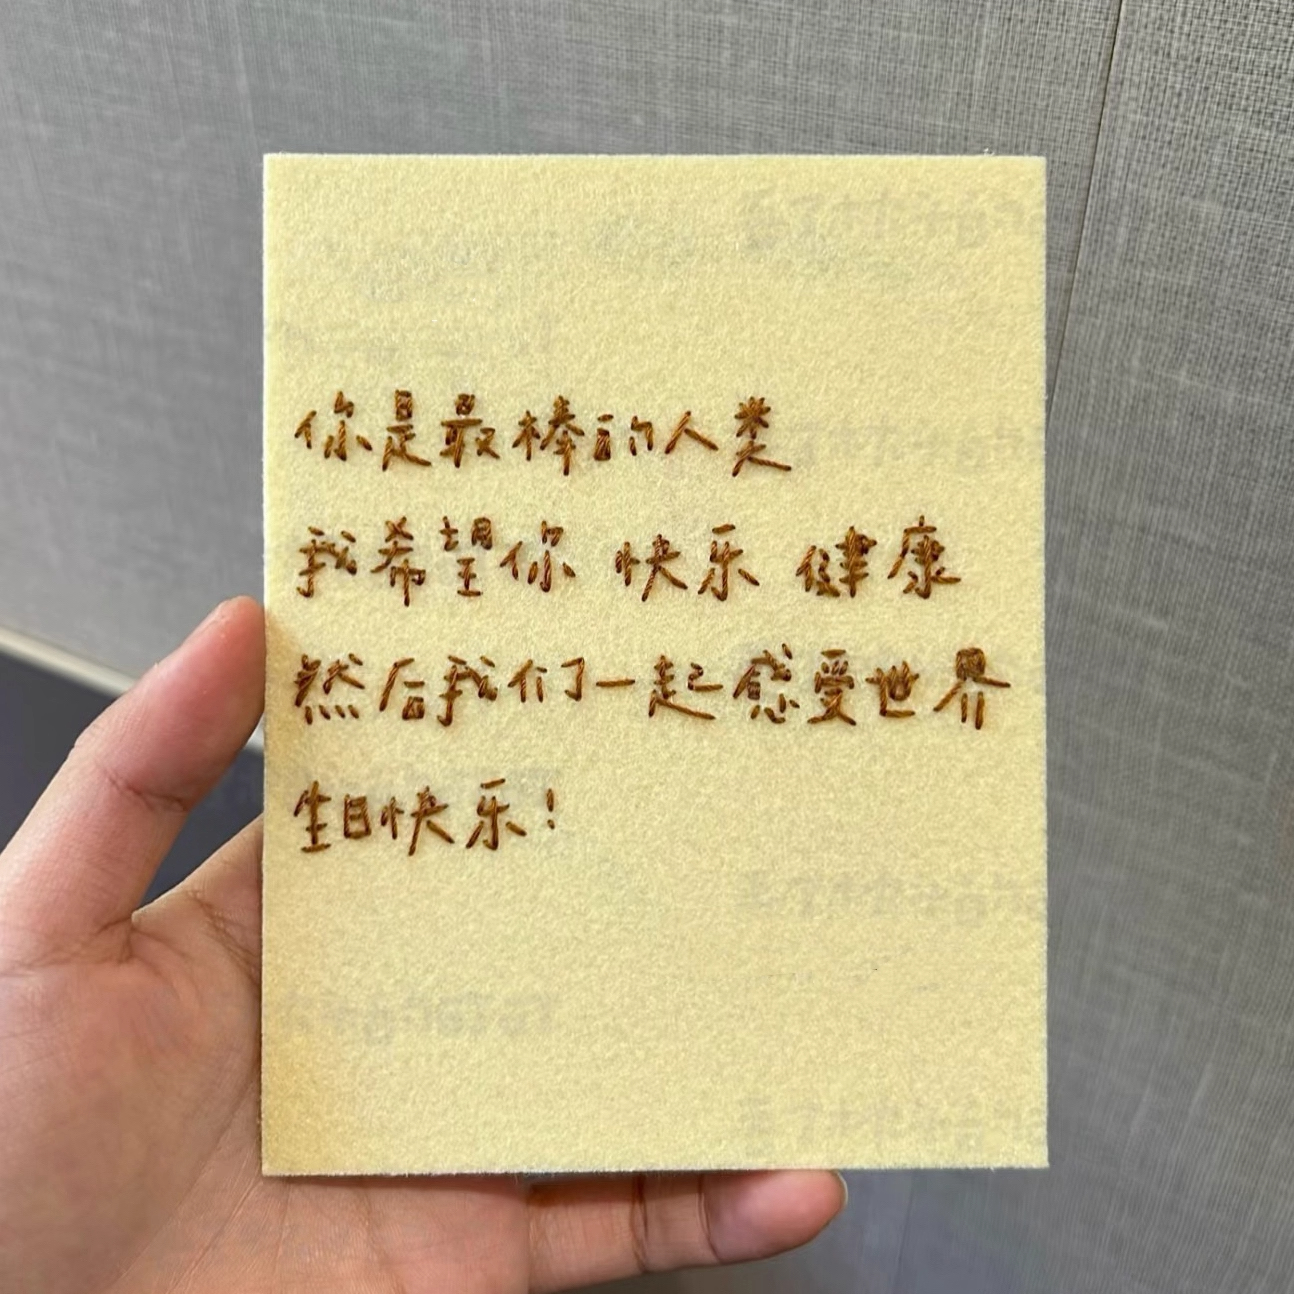 你是最棒的人类
我希望你 快乐 健康
然后我们一起感受世界
生日快乐!